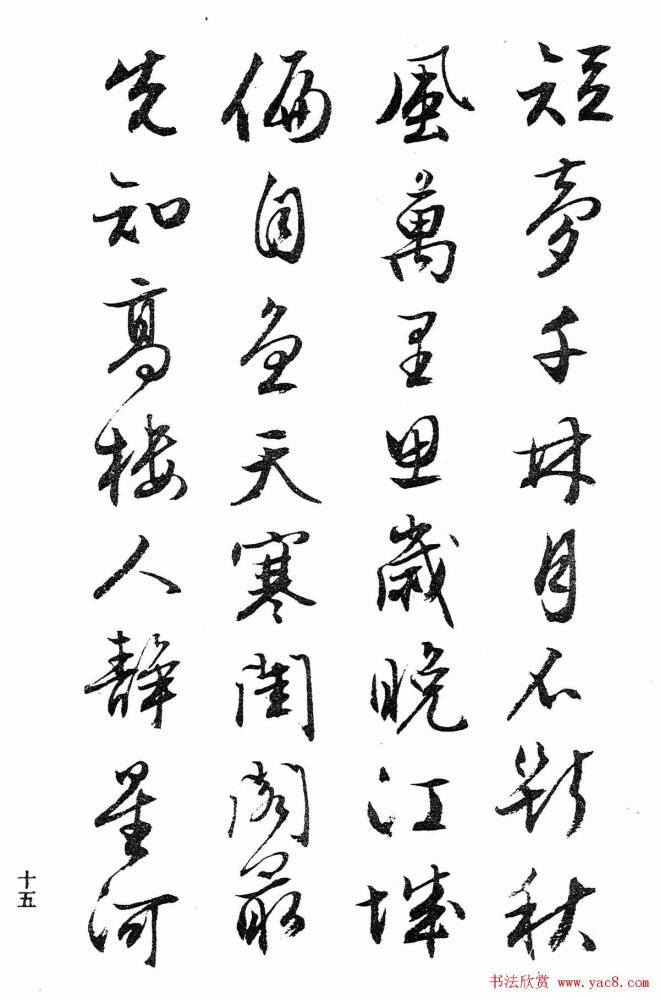 短夢千林月不斷秋
風萬里思歲晚江城
偏自急天寒閨閣最
先知高樓人靜星河
十五
书法欣赏 www.yac8.com